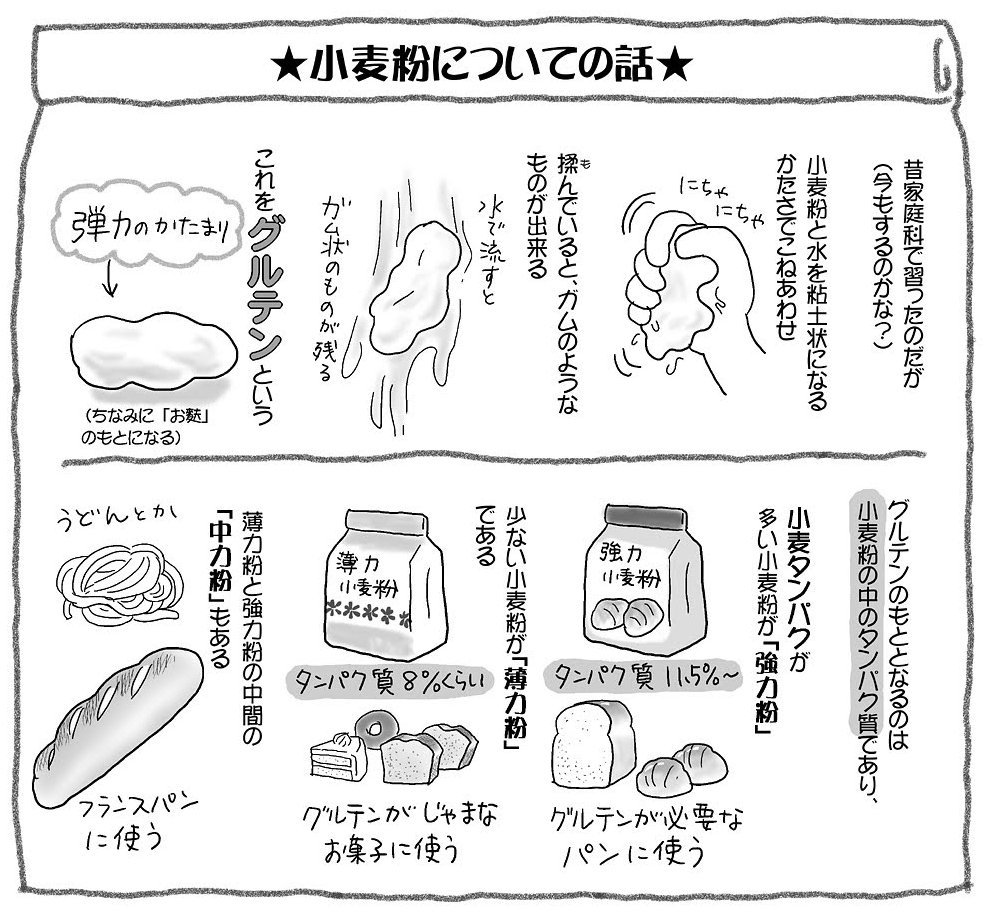 ★小麦粉についての話★
昔家庭科で習ったのだが
(今もするのかな?)
小麦粉と水を粘土状になる
かたさでこねあわせ
にちゃ
にちゃ
揉んでいると、ガムのような
も
ものが出来る
水で流すと
ガム状のものが残る
これをグルテンという
弾力のかたまり
(ちなみに「お麩」
のもとになる)
グルテンのもととなるのは
小麦粉の中のタンパク質であり、
小麦タンパクが
多い小麦粉が「強力粉」
強力
小麦粉
タンパク質 11.5%~
グルテンが必要な
パンに使う
少ない小麦粉が「薄力粉」
である
薄力
小麦粉
タンパク質 8%くらい
グルテンがじゃまな
お菓子に使う
薄力粉と強力粉の中間の
「中力粉」もある
うどんとか
フランスパン
に使う